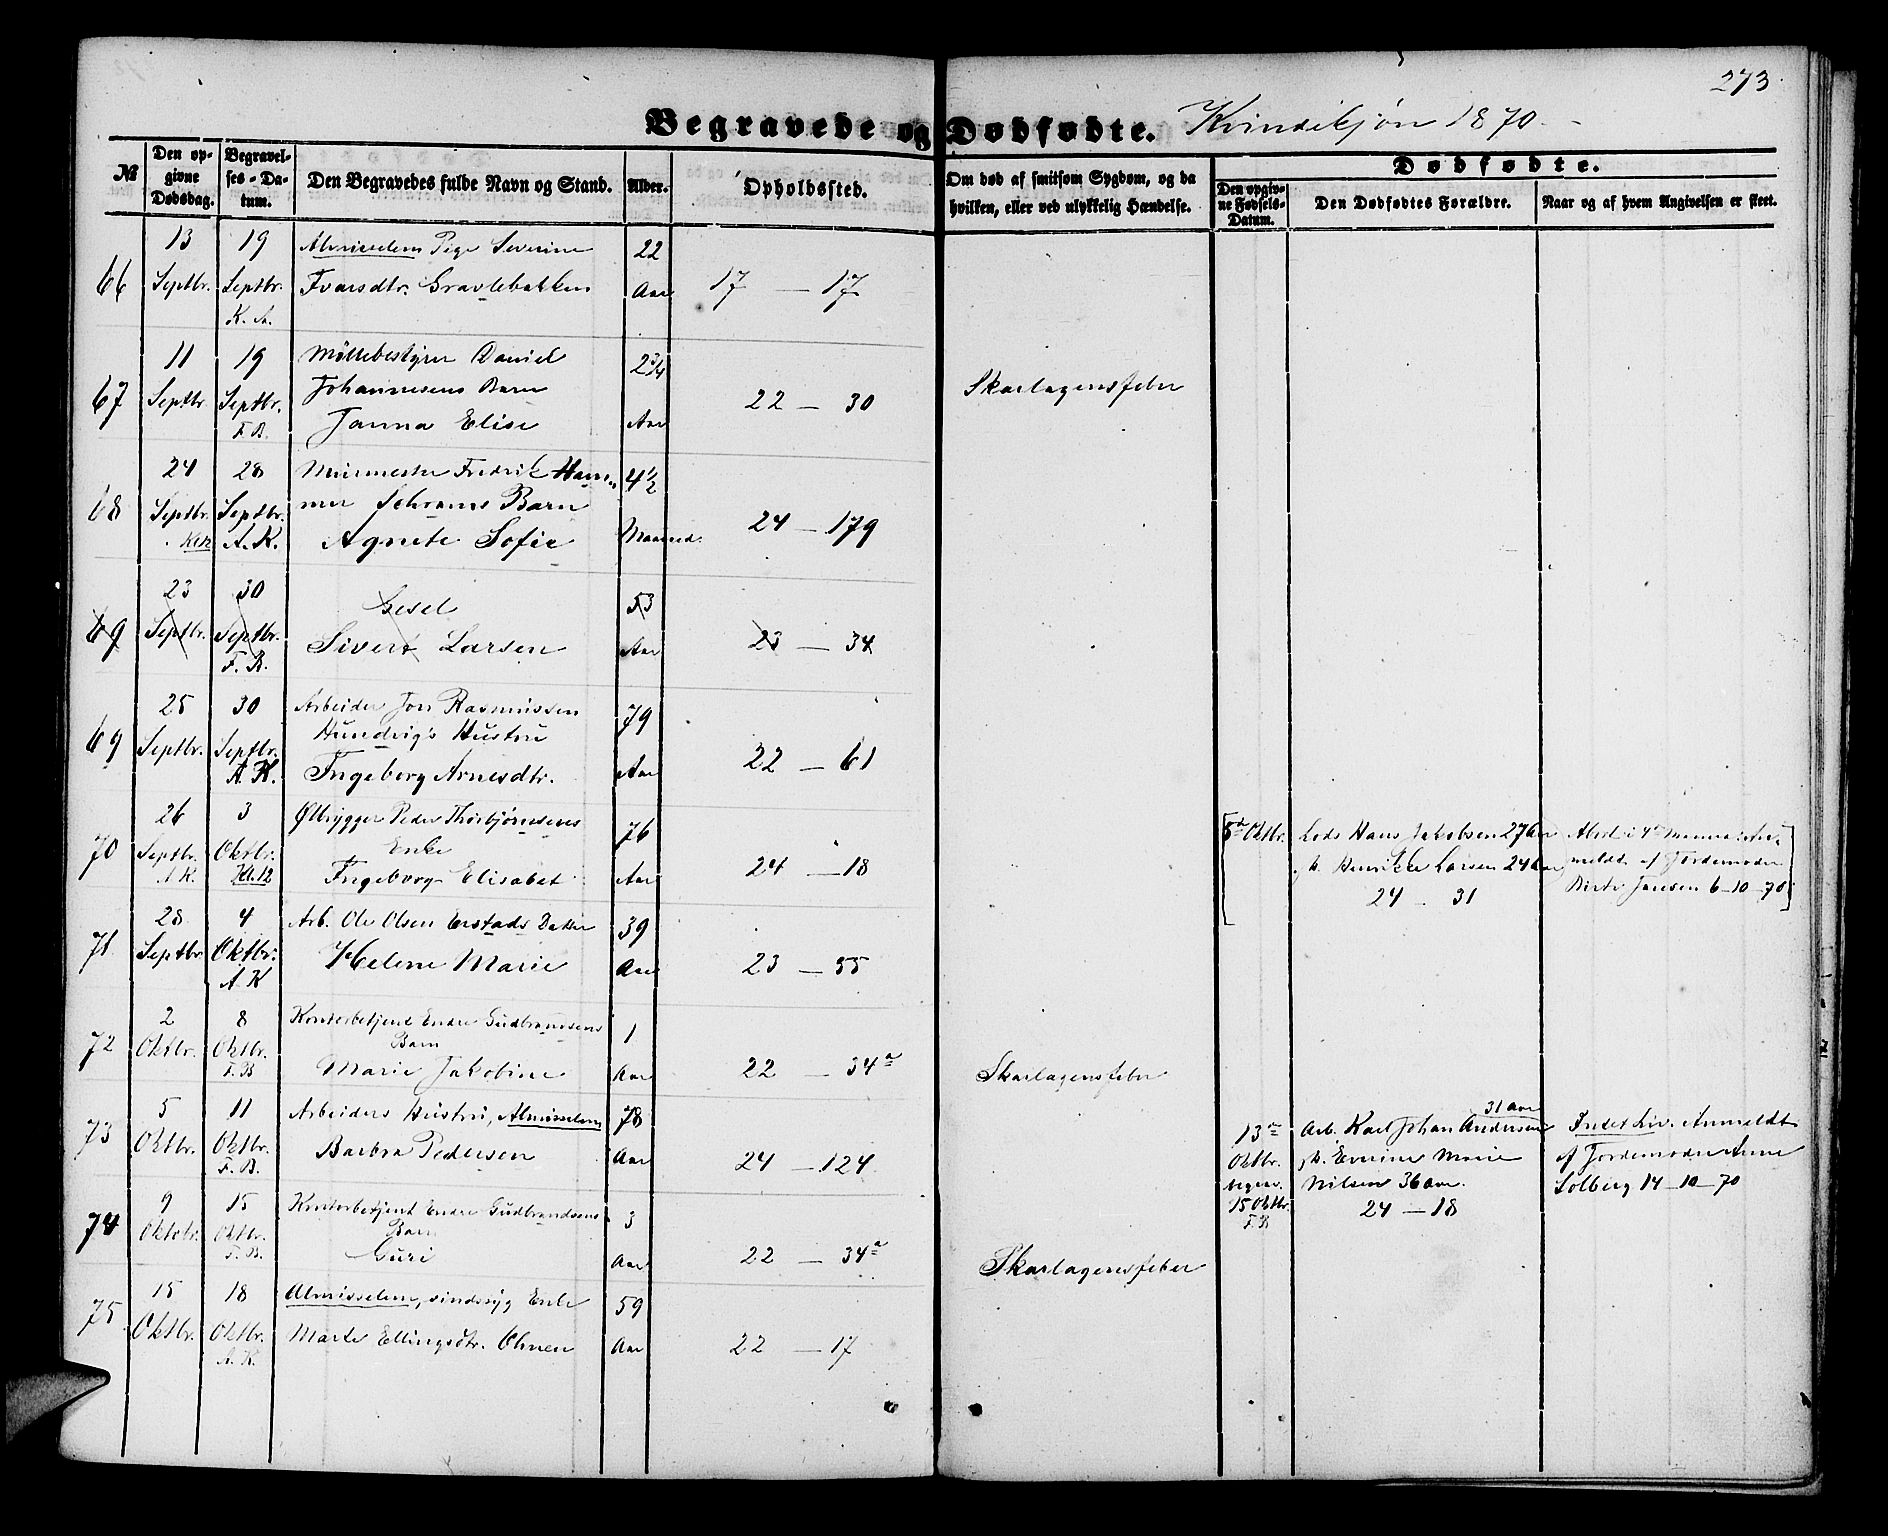 273.
Begravede og Dødfødte. Kvindekjøn 1870.
№
Den opgivne Dødsdag.
Begravelses-Datum.
Den Begravedes fulde Navn og Stand.
Alder.
Opholdssted.
Om død af smitsom Sygdom, og da hvilken, eller ved ulykkelig Hændelse.
Dødfødte.
Den opgivne Fødsels-Datum.
Den Dødfødtes Forældre.
Naar og af hvem Angivelsen er skeet.
13 19 Almisselem Pige Severine 22
66 Septbr. Septbr. Ivarsdtr. Gravlebakken Aar 17 — 17
K. A.
11 19 Møllebestyrer Daniel 2 3/4
67 Septbr. Septbr. Johannesens Barn 22 — 30 Skarlagensfeber
F. B. Janna Elise Aar
24 28 Muurmester Fredrik Ham- 4 1/2
68 Septbr. Septbr. mer Schrams Barn 24 — 179
Kl 12 A. K. Agnete Sofie Maaned
23 30 Gesel 53
69 Septbr. Septbr. Sivert Larsen Aar 23 — 34
F. B.
25 30 Arbeider Jon Rasmussen 79
69 Septbr. Septbr. Hundvig's Hustru 22 — 61
A. K. Ingeborg Arnesdtr. Aar
26 3 Ølbrygger Peder Thorbjørnsens 76
70 Septbr. Oktbr. Enke 24 — 18
A K. Kl. 12 Ingeborg Elisabet Aar
5d Oktbr. Lods Hans Jakobsen 27 Aar
h. Henrikke Larsen 24 Aar
24 - 31
Abort i 4d Maaned Anmeldt
af Jordemoder
Birte Jansen 6-10-70
28 4 Arb. Ole Olsen Erstads Datter 39
71 Septbr Oktbr. Helene Marie Aar 23 — 55
A. K
2 8 Kontorbetjent Endre Gudbrandsens 1
72 Oktbr. Oktbr. Barn
F. B Marie Jakobine Aar 22 — 34a Skarlagensfeber
5 11 Arbeiders Hustru, Almisselem 78
73 Oktbr. Oktbr. Barbra Pedersen Aar 24 — 124
F. B.
31 Aar
13de Oktbr. Arb. Karl Johan Andersen
h. Everine Marie
Nilsen 36 Aar.
24 — 18
15 Oktbr.
F. B
Intet Liv. Anmeldt
af Jordemoder Anne
Solberg 14-10-70
9 15 Kontorbetjent Endre Gudbrandsens 3
74 Oktobr. Oktbr. Barn
F. B. Guri Aar 22 — 34a Skarlagensfeber
15 18 Almisselem, sindssyg Enke 59
75 Oktbr. Oktbr. Marte Ellingsdtr. Ohnen Aar 22 — 17
A. K.